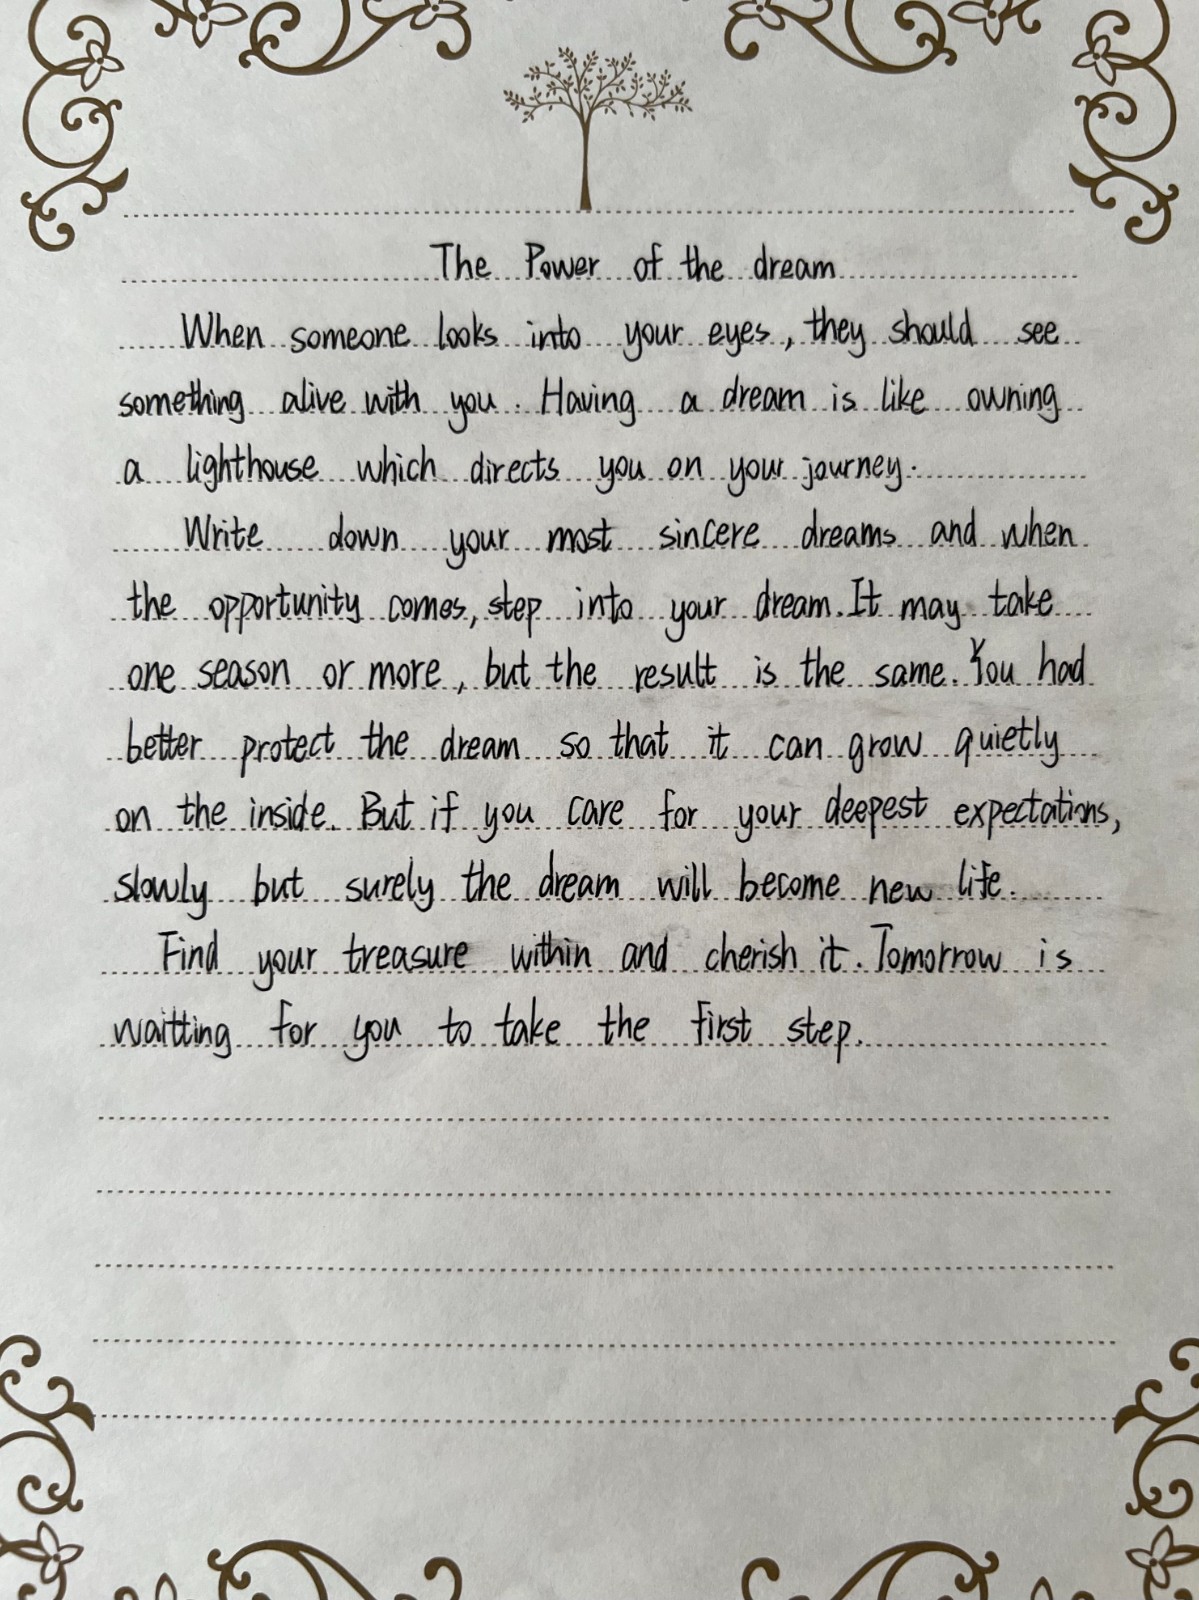 The Power of the dream
When someone looks into your eyes, they should see
something alive with you. Having a dream is like owning
a lighthouse which directs you on your journey.
Write down your most sincere dreams and when
the opportunity comes, step into your dream. It may take
one season or more, but the result is the same. You had
better protect the dream so that it can grow quietly
on the inside. But if you care for your deepest expectations,
slowly but surely the dream will become new life.
Find your treasure within and cherish it. Tomorrow is
waitting for you to take the first step.